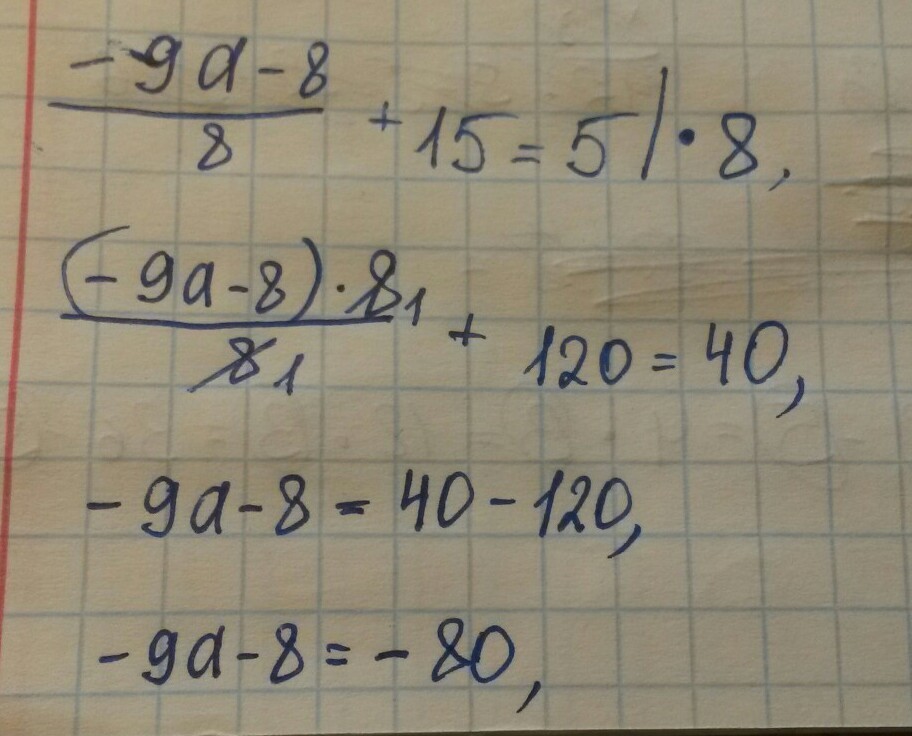 (-9a-8)/8 + 15 = 5 | · 8,
((-9a-8) · 8 1)/(8 1) + 120 = 40,
-9a-8 = 40-120,
-9a-8 = -80,